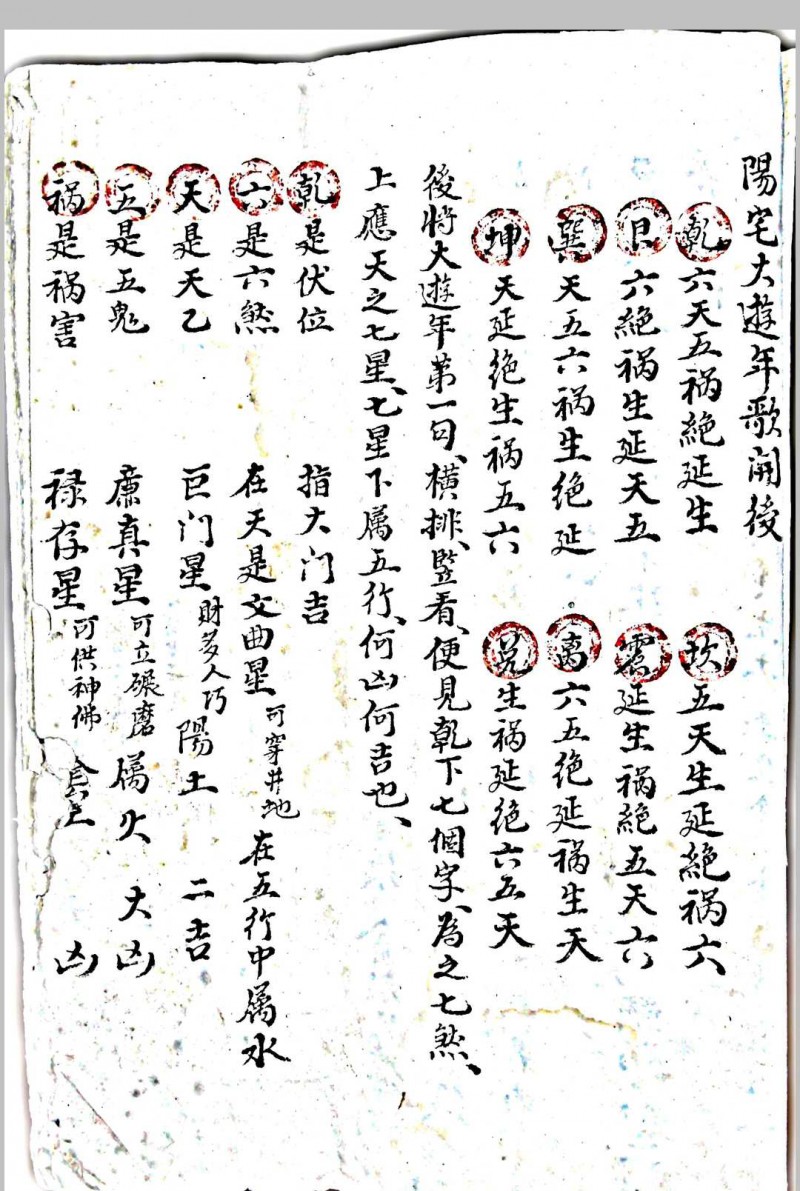 陽宅大遊年歌開後
乾六天五祸絕延生 坎五天生延絕祸六
艮六絕祸生延天五 震延生祸絕五天六
巽天五六祸生绝延 离六五绝延祸生天
坤天延绝生祸五六 兑生祸延绝六五天
後将大遊年第一句、横排、竖看、便見乾下七個字、為之七煞、
上應天之七星、七星下属五行、何凶何吉也、
乾是伏位 指大门吉
六是六煞 在天是文曲星 可穿井地 在五行中属水
天是天乙 巨门星 財多人巧 陽土 二吉
五是五鬼 廉真星 可立碾磨 属火 大凶
祸是祸害 禄存星 可供神佛 凶